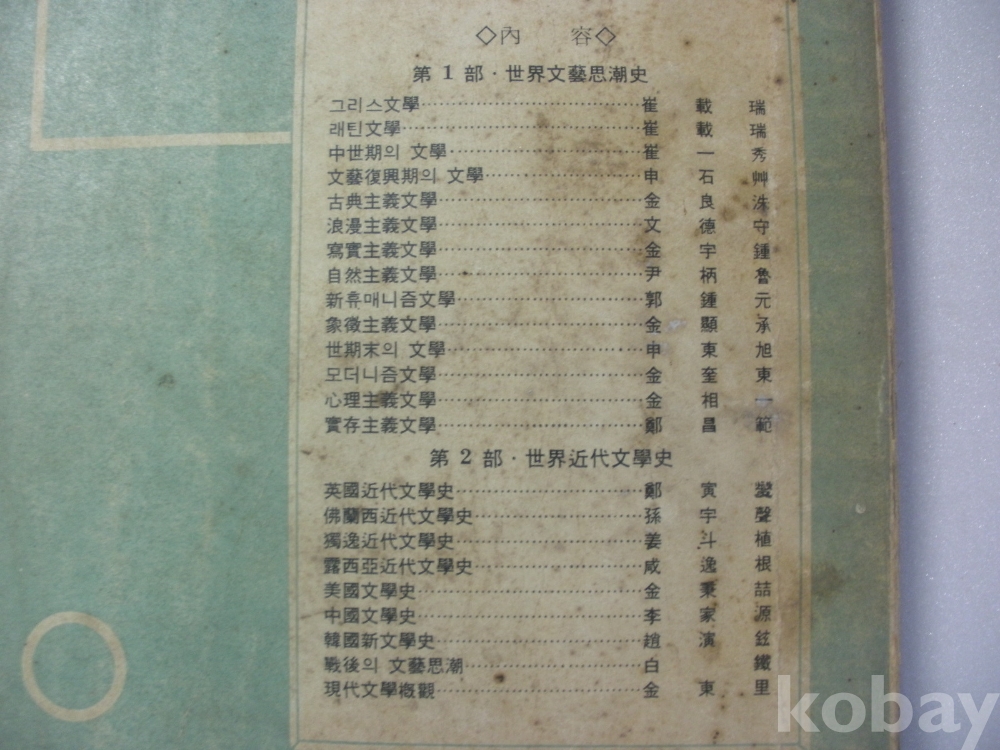 ◇內 容◇
第 1 部 · 世界文藝思潮史
그리스文學 崔 載 瑞
래틴文學 崔 載 瑞
中世期의 文學 崔 一 秀
文藝復興期의 文學 申 石 艸
古典主義文學 金 良 洙
浪漫主義文學 文 德 守
寫實主義文學 金 宇 鍾
自然主義文學 尹 柄 魯
新휴매니즘文學 郭 鍾 元
象徵主義文學 金 顯 承
世期末의 文學 申 東 旭
모더니즘文學 金 奎 東
心理主義文學 金 相 一
實存主義文學 鄭 昌 範
第 2 部 · 世界近代文學史
英國近代文學史 鄭 寅
佛蘭西近代文學史 孫 宇 聲
獨逸近代文學史 姜 斗 植
露西亞近代文學史 咸 逸 根
美國文學史 金 秉 喆
中國文學史 李 家 源
韓國新文學史 趙 演 鉉
戰後의 文藝思潮 白 鐵
現代文學槪觀 金 東 里
kobay